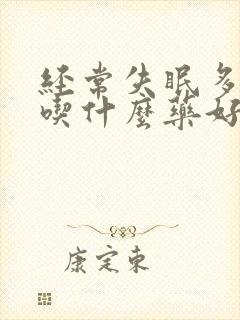 經常失眠多
喫什麼藥好
康定東